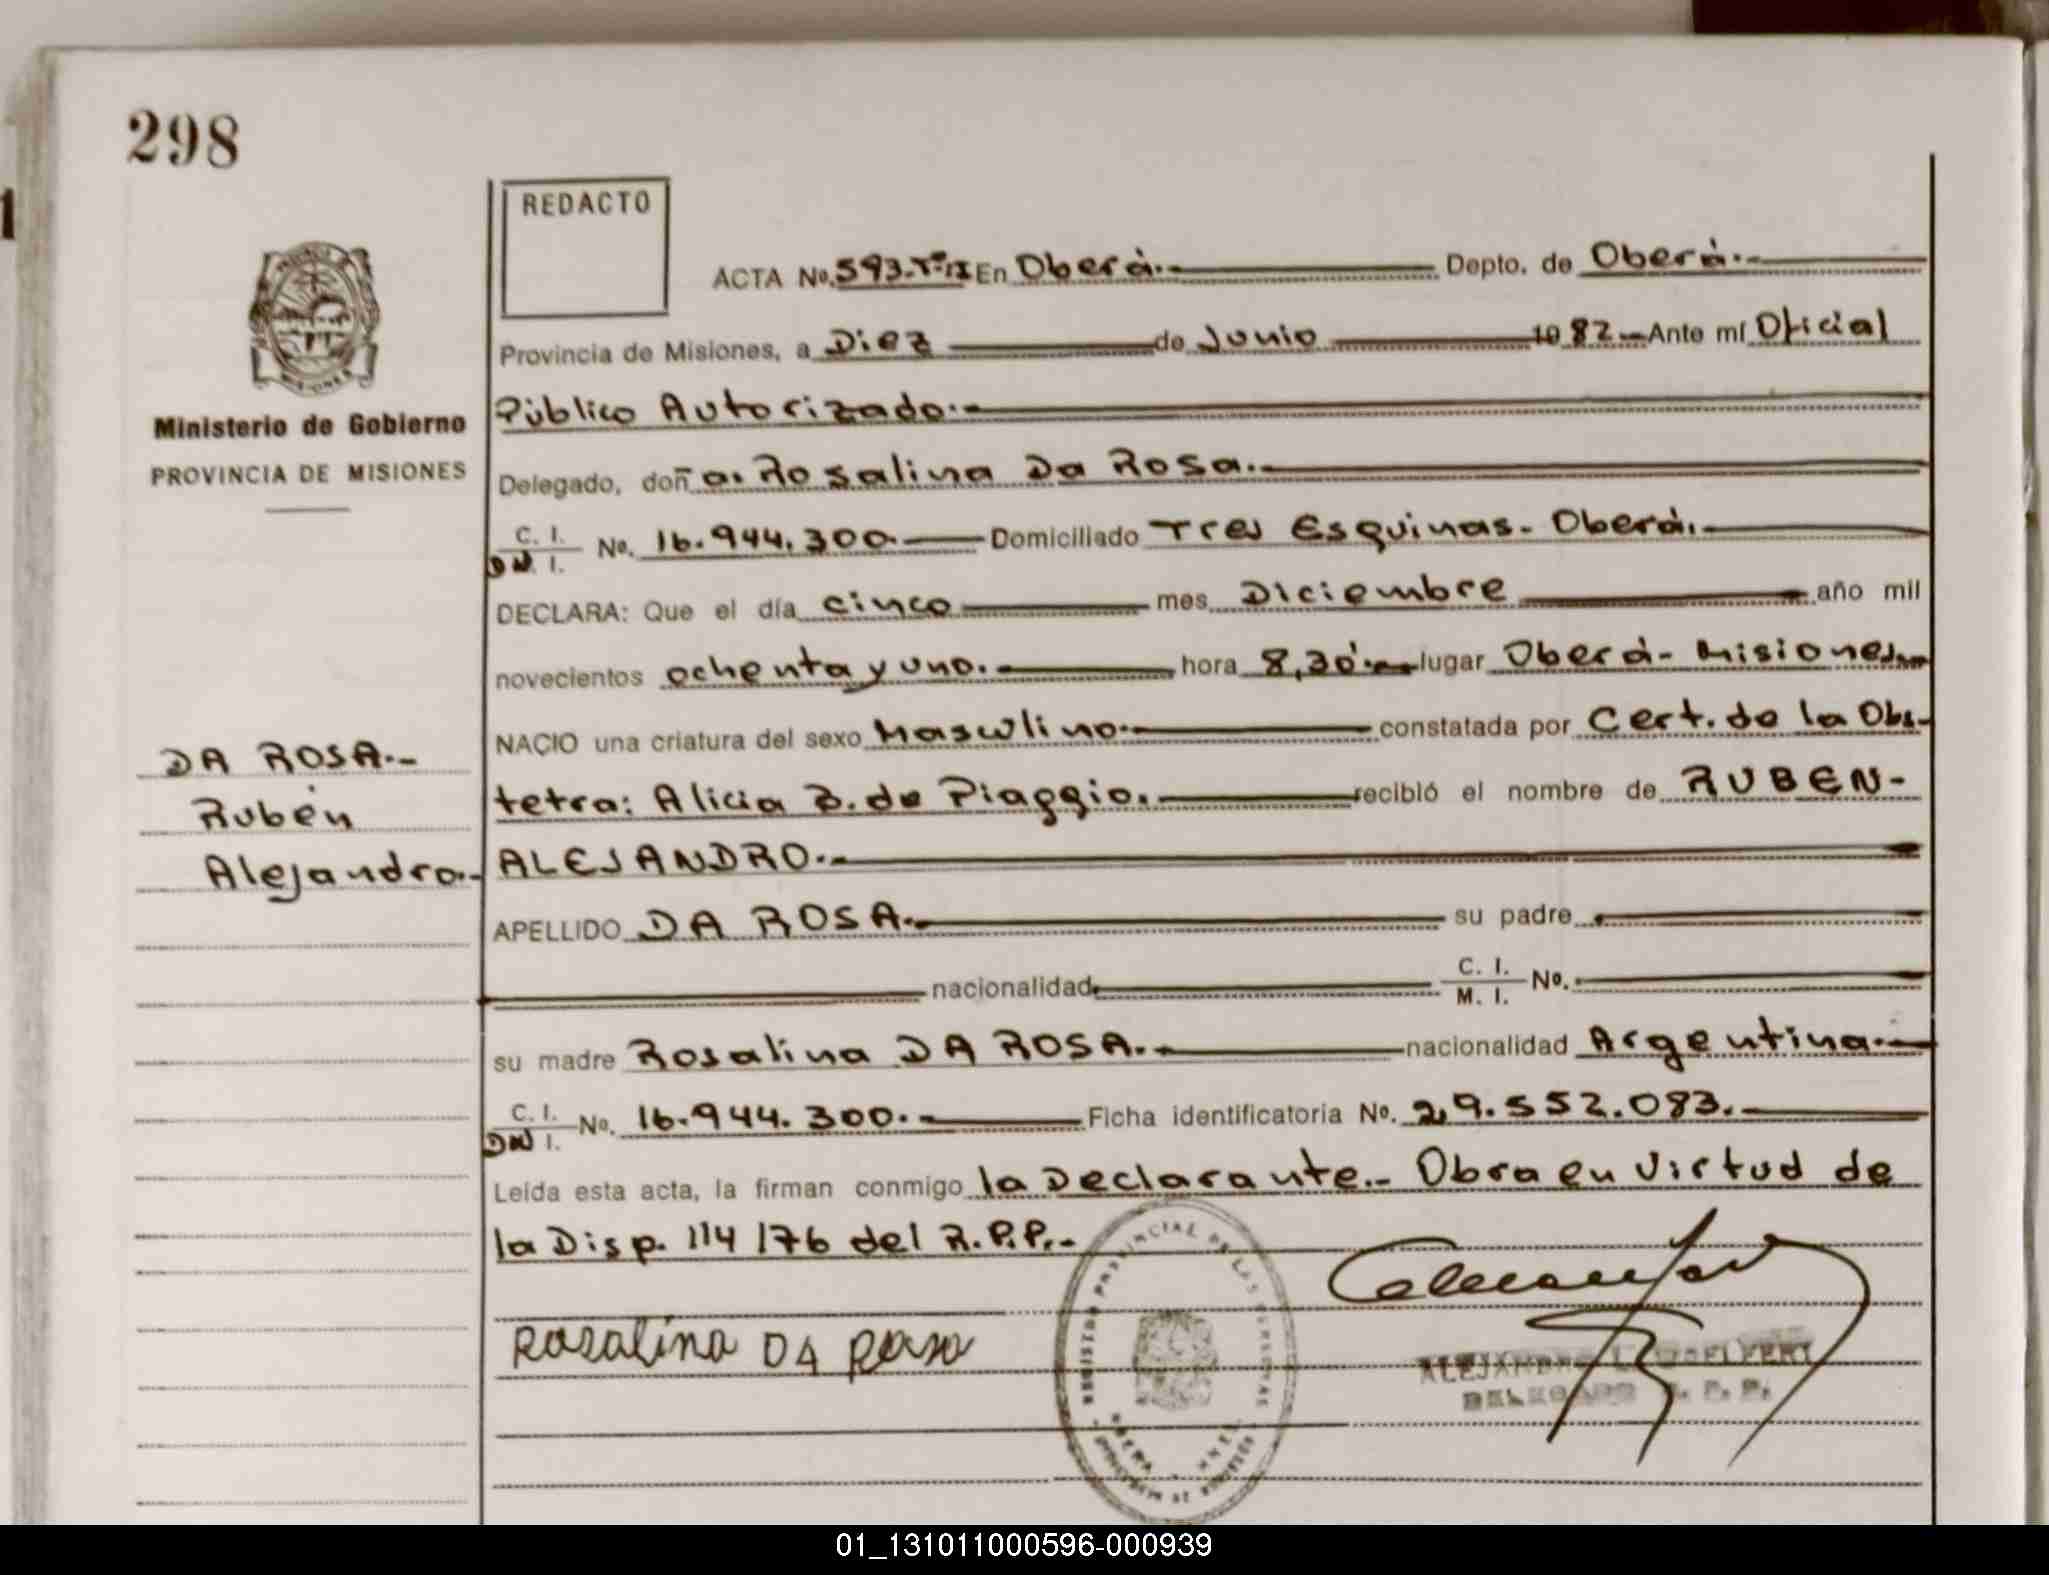 298
1
REDACTO
ACTA No. 593-Tº II En Oberá.- Depto. de Oberá.-
Provincia de Misiones, a Diez de Junio 1982- Ante mí Oficial
Público Autorizado.-
Ministerio de Gobierno
PROVINCIA DE MISIONES
Delegado, doña. Rosalina Da Rosa.-
C. I.
DN. I. No. 16.944.300.- Domiciliado Tres Esquinas- Oberá.-
DECLARA: Que el día cinco mes Diciembre año mil
novecientos ochenta y uno.- hora 8,30'.- lugar Oberá- Misiones.-
NACIO una criatura del sexo Masculino.- constatada por Cert. de la Obs-
DA ROSA.-
Rubén
Alejandro.-
tetra: Alicia B. de Piaggio.- recibió el nombre de RUBEN-
ALEJANDRO.-
APELLIDO DA ROSA.- su padre
nacionalidad C. I.
M. I. No.
su madre Rosalina DA ROSA.- nacionalidad Argentina.-
C. I.
DN I. No. 16.944.300.- Ficha identificatoria No. 29.552.083.-
Leída esta acta, la firman conmigo la Declarante.- Obra en Virtud de
la Disp. 114/76 del R.P.P.-
Rosalina DA Rosa
REGISTRO PROVINCIAL DE LAS PERSONAS
ALEJANDRO
DELEGADO R. P. P.
01_131011000596-000939